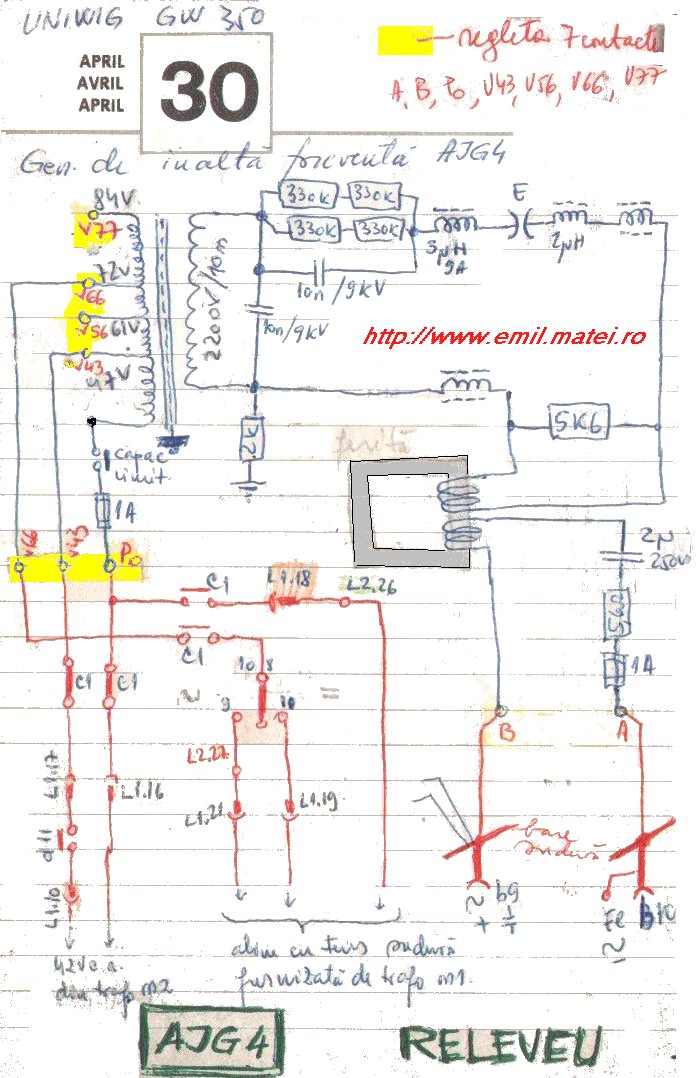 UNIWIG GW 350
regleta 7 contacte
A, B, Po, V43, V56, V66, V77
APRIL
AVRIL
APRIL
30
Gen. de inaltă frecventă AJG4
84V
V77
72V
V66
V56 61V
V43
47V
2200V/10m
330K 330K
330K 330K
10n/9kV
10n/9kV
3µH
9A
E
2µH
http://www.emil.matei.ro
2K
5K6
ferită
capac
limit
1A
V66
V43
Po
2µ
250V
56Ω
1A
C1
L1.18
L2.26
C1
C1
C1
10 8
~
=
9
10
B
A
L1.17
L1.16
L2.27
L1.21
L1.19
d11
L1.10
bare
sudură
~
+
b9
Fe
~
B10
42V c.a.
din trafo m2
alim cu tens sudură
furnizată de trafo m1.
AJG4
RELEVEU